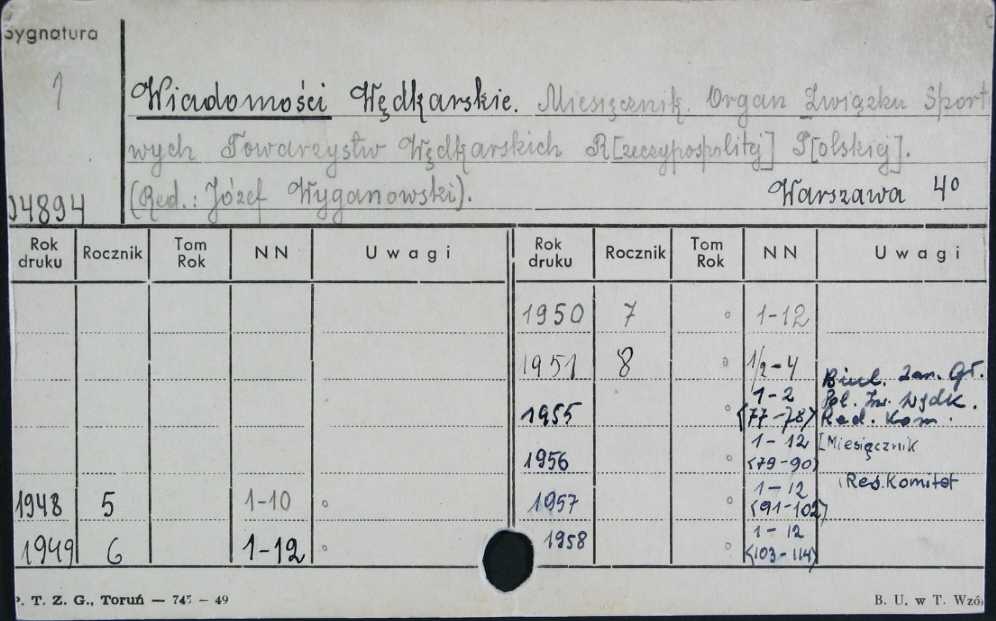 Sygnatura
1
Wiadomości Wędkarskie. Miesięcznik. Organ Związku Sport
wych Towarzystw Wędkarskich R[zeczypospolitej] P[olskiej].
(Red.: Józef Wyganowski). Warszawa 4°
04894
Rok druku Rocznik Tom Rok NN Uwagi Rok druku Rocznik Tom Rok NN Uwagi
1950 7 1-12
1951 8 1/2-4
Biul. Zan. Gł.
1955 1-2 (77-78) Pol. Zw. Wędk. Red. Kom.
1956 1-12 (79-90) [Miesięcznik
1948 5 1-10 1957 1-12 (91-102) Red. Komitet
1949 6 1-12 1958 1-12 (103-114)
P. T. Z. G., Toruń — 745 — 49 B. U. w T. Wzó